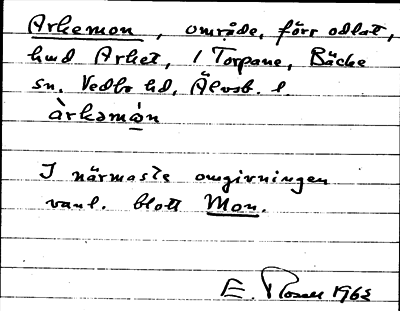 Arkemon, område, förr odlat,
hmd Arket, 1 Torpane, Bäcke
sn. Vedbo hd, Älvsb. l.
àrkəmån
I närmaste omgivningen
vanl. blott Mon.
E. 1962